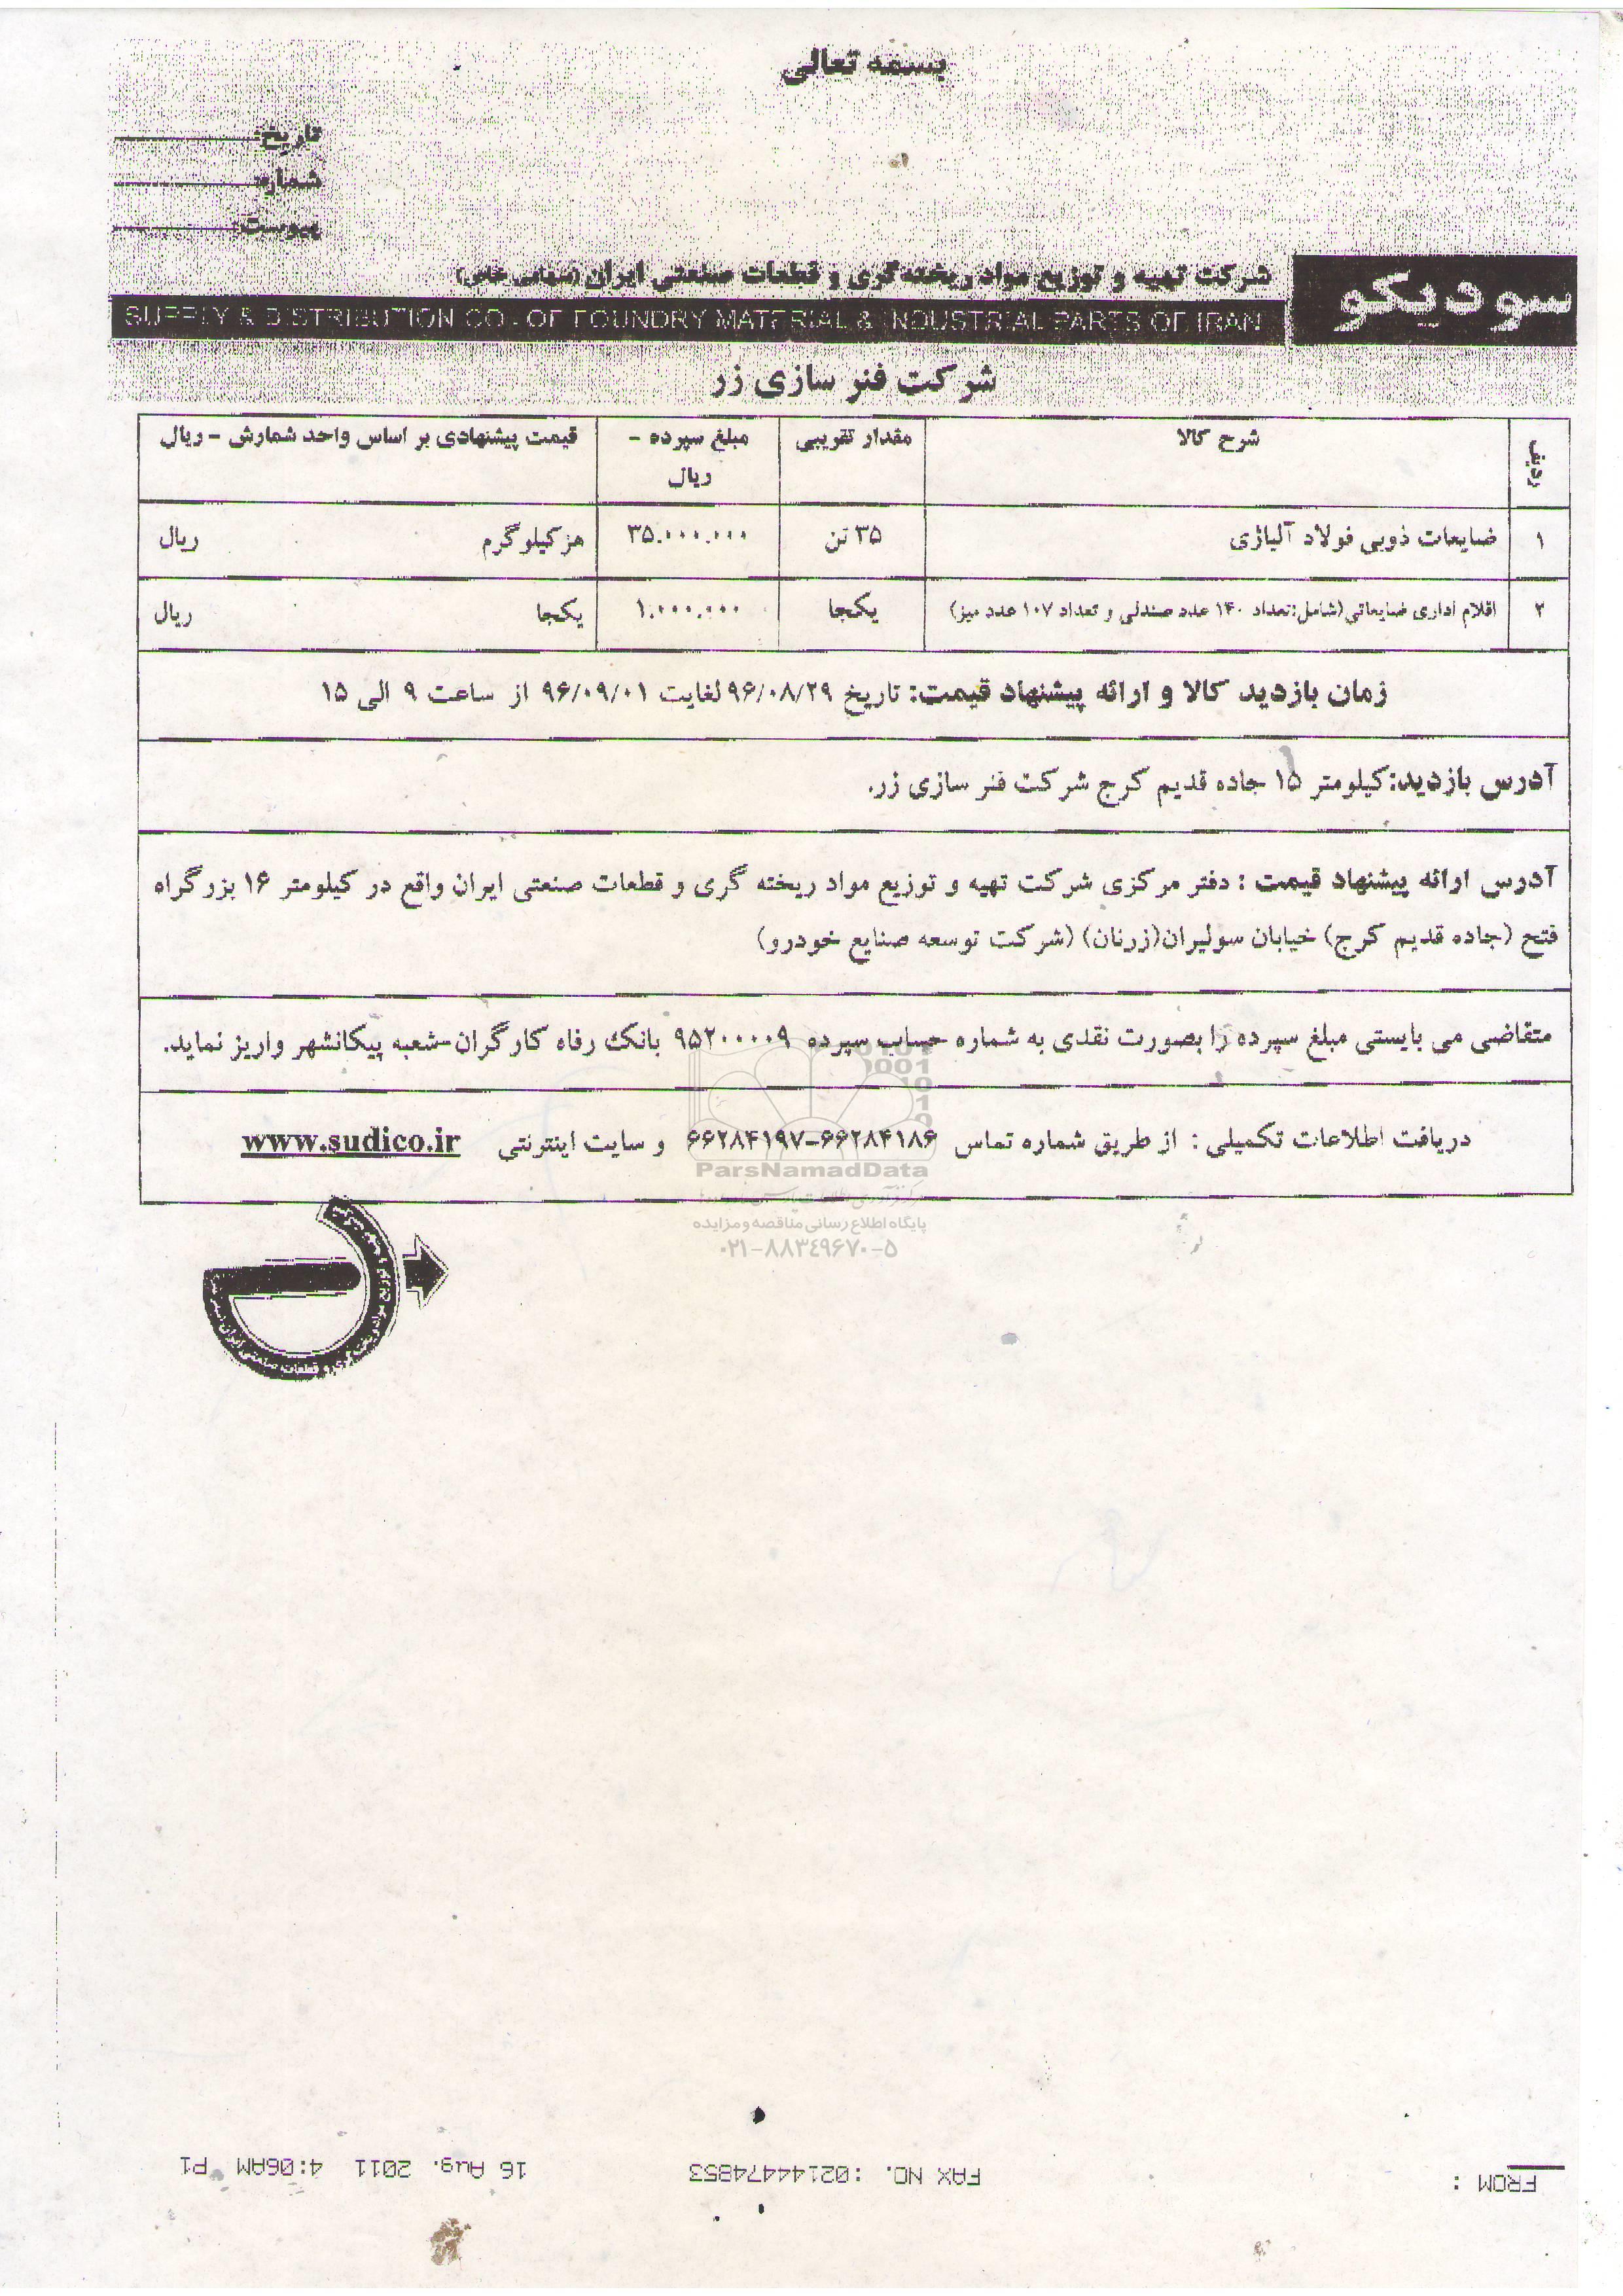 بسمه تعالی
تاریخ:
شماره:
پیوست:
سودیکو
شرکت تهیه و توزیع مواد ریخته گری و قطعات صنعتی ایران (سهامی خاص)
SUPPLY & DISTRIBUTION CO. OF FOUNDRY MATERIAL & INDUSTRIAL PARTS OF IRAN
شرکت فنر سازی زر
ردیف شرح کالا مقدار تقریبی مبلغ سپرده - ریال قیمت پیشنهادی بر اساس واحد شمارش - ریال
۱ ضایعات ذوبی فولاد آلیاژی ۳۵ تن ۳۵.۰۰۰.۰۰۰ هرکیلوگرم ریال
۲ اقلام اداری ضایعاتی(شامل:تعداد ۱۴۰ عدد صندلی و تعداد ۱۰۷ عدد میز) یکجا ۱.۰۰۰.۰۰۰ یکجا ریال
زمان بازدید کالا و ارائه پیشنهاد قیمت: تاریخ ۹۶/۰۸/۲۹ لغایت ۹۶/۰۹/۰۱ از ساعت ۹ الی ۱۵
آدرس بازدید:کیلومتر ۱۵ جاده قدیم کرج شرکت فنر سازی زر.
آدرس ارائه پیشنهاد قیمت : دفتر مرکزی شرکت تهیه و توزیع مواد ریخته گری و قطعات صنعتی ایران واقع در کیلومتر ۱۶ بزرگراه
فتح (جاده قدیم کرج) خیابان سولیران(زرنان) (شرکت توسعه صنایع خودرو)
متقاضی می بایستی مبلغ سپرده را بصورت نقدی به شماره حساب سپرده ۹۵۲۰۰۰۰۹ بانک رفاه کارگران-شعبه پیکانشهر واریز نماید.
دریافت اطلاعات تکمیلی : از طریق شماره تماس ۶۶۲۸۴۱۸۶-۶۶۲۸۴۱۹۷ و سایت اینترنتی www.sudico.ir
ParsNamadData
پایگاه اطلاع رسانی مناقصه و مزایده
۰۲۱-۸۸۳۴۹۶۷۰-۵
FROM : FAX NO. :02144474853 16 Aug. 2011 4:06AM P1